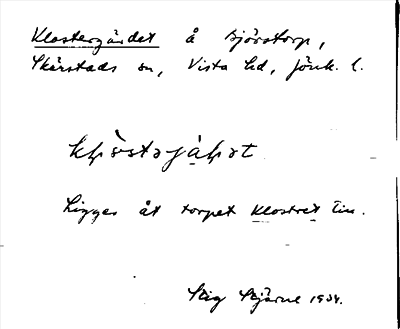 Klostergärdet å Björstorp,
Skärstads sn, Vista hd, Jönk. l.
Ligger åt torpet Klostret till.
Stig Bjärne 1934.